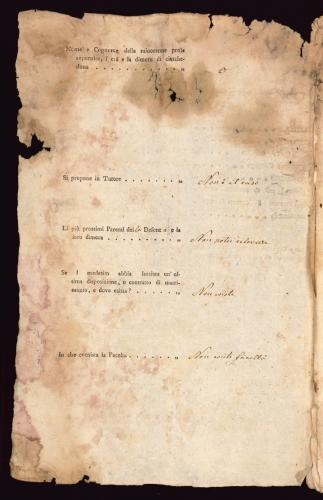 Nome e Cognome della minorenne prole
separato, l'età e la dimora di ciasche-
duno . . . . . . . . . . „ 0
Si propone in Tutore . . . . . . „ Non è il caso
Li più prossimi Parenti del Defont o e la
loro dimora . . . . . . . . „ Non potei rilevare
Se i medesimi abbia lasciata un' ul-
tima disposizione, o contratto di matri-
monio, e dove esista? . . . . . . „ Non esiste
In che consista la Facoltà . . . . „ Non esiste facoltà